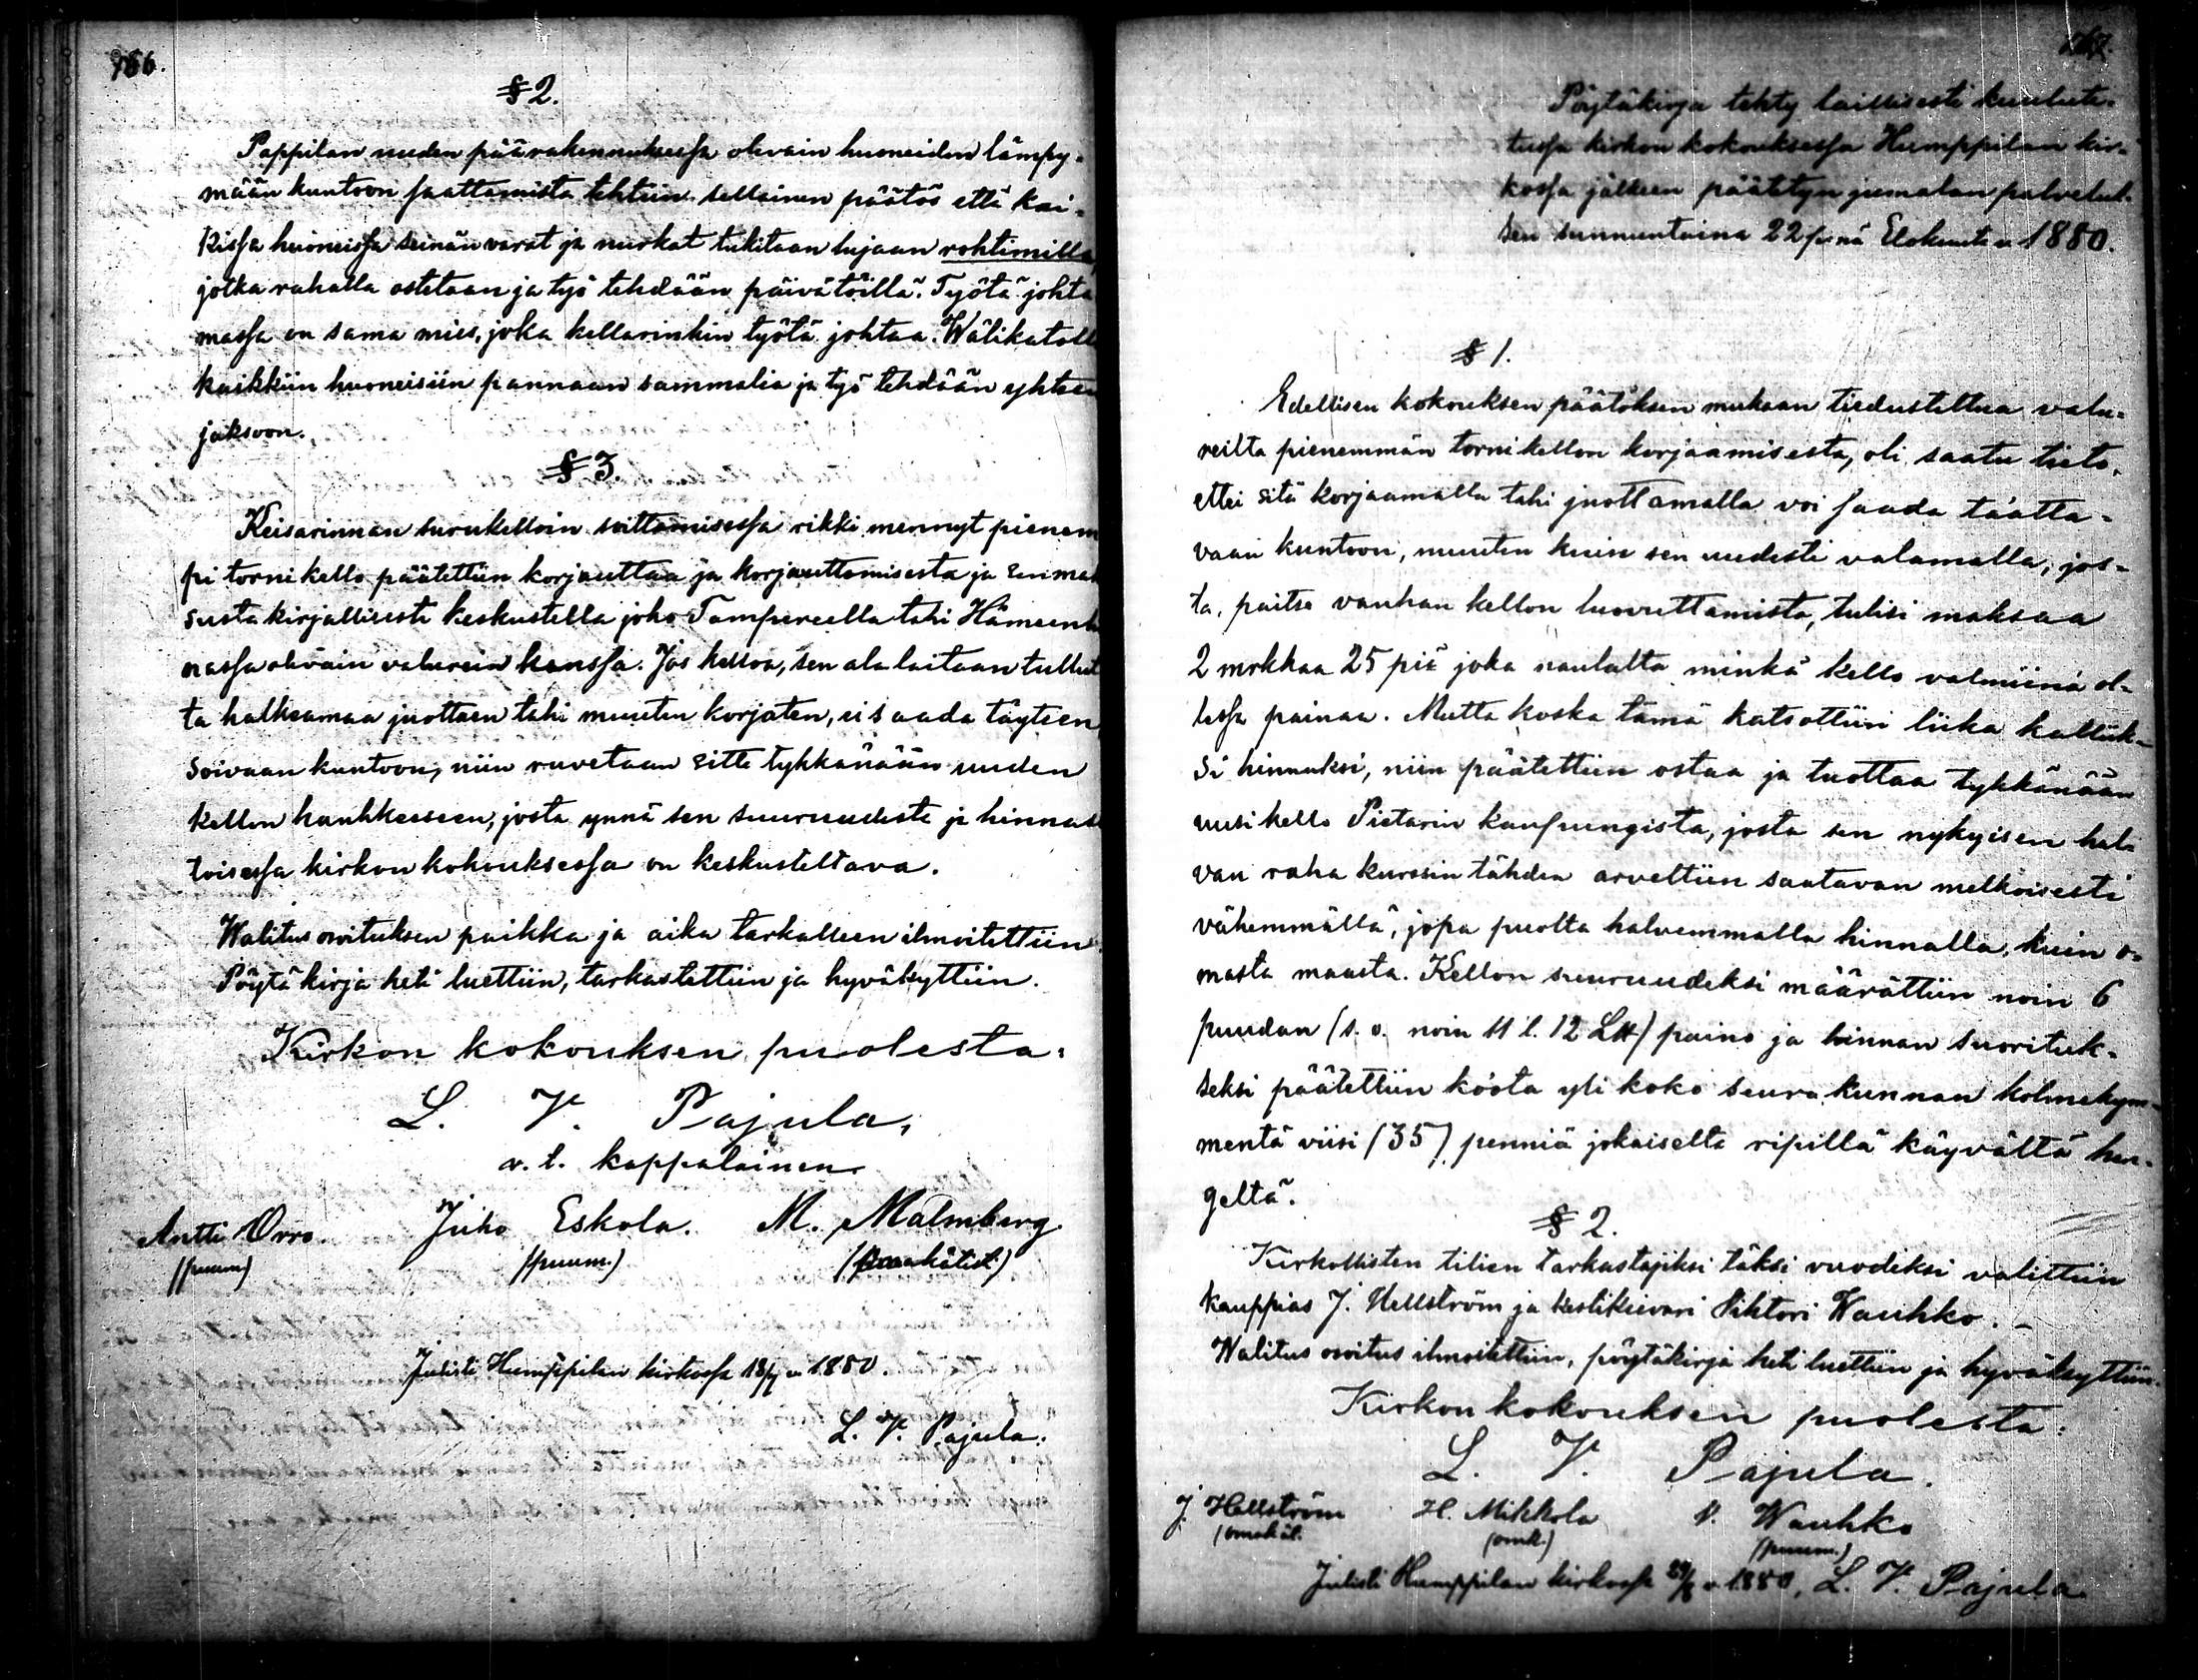 166.
§ 2.
Pappilan uuden päärakennuksessa olevain huoneiden lämpy-
mään kuntoon saattamista tehtiin sellainen päätös että kai-
kissa huoneissa seinän varat ja nurkat tukitaan lujaan rohtimilla,
jotka rahalla ostetaan ja työ tehdään päivätöillä. Työtä johta
massa on sama mies, joka kellarinkin työtä johtaa. Wälikatolle
kaikkiin huoneisiin pannaan sammalia ja työ tehdään yhteen
jaksoon.
§ 3.
Keisarinnan surukelloin soittamisessa rikki mennyt pienem
pi tornikello päätettiin korjauttaa ja korjauttamisesta ja sen mak
susta kirjallisesti keskustella joko Tampereella tahi Hämeenli
nassa olevain valurein kanssa. Jos kelloa, sen ala laitaan tullut
ta halkeamaa juottaen tahi muuten korjaten, ei saada täyteen
soivaan kuntoon, niin ruvetaan sitte tykkänään uuden
kellon hankkeeseen, josta ynnä sen suuruudesta ja hinnas
toisessa kirkonkokouksessa on keskusteltava.
Walitusosoituksen paikka ja aika tarkalleen ilmoitettiin.
Pöytäkirja heti luettiin, tarkastettiin ja hyväksyttiin.
Kirkon kokouksen puolesta:
L. V. Pajula,
v. t. kappalainen
Antti Orro. Juho Eskola. M. Malmberg
(puum.) (puum.) (omakätis.)
Julisti Humppilan kirkossa 18/7 v. 1880.
L. V. Pajula.
167.
Pöytäkirja tehty laillisesti kuulute-
tussa kirkon kokouksessa Humppilan kir-
kossa jälkeen päätetyn jumalan palveluk-
sen sunnuntaina 22 p:nä Elokuuta v. 1880.
§ 1.
Edellisen kokouksen päätöksen mukaan tiedusteltua valu-
reilta pienemmän tornikellon korjaamisesta, oli saatu tieto,
ettei sitä korjaamalla tahi juottamalla voi saada taatta-
vaan kuntoon, muuten kuin sen uudesti valamalla, jos-
ta, paitse vanhan kellon luovuttamista, tulisi maksaa
2 mrkkaa 25 piä joka naulalta minkä kello valmiina ol-
lessa painaa. Mutta koska tämä katsottiin liika kalliik-
si hinnaksi, niin päätettiin ostaa ja tuottaa tykkänään
uusi kello Pietarin kaupungista, josta sen nykyisen hal-
van raha kurssin tähden arveltiin saatavan melkoisesti
vähemmällä, jopa puolta halvemmalla hinnalla, kuin o-
masta maasta. Kellon suuruudeksi määrättiin noin 6
puudan (s. o. noin 11 l. 12 L℔) paino ja hinnan suorituk-
seksi päätettiin koota yli koko seurakunnan kolmekym-
mentä viisi (35) penniä jokaiselta ripillä käyvältä hen-
geltä.
§ 2.
Kirkollisten tilien tarkastajiksi täksi vuodeksi valittiin
kauppias J. Hellström ja kestikievari Vihtori Wauhko. –
Walitus osoitus ilmoitettiin, pöytäkirja heti luettiin ja hyväksyttiin.
Kirkonkokouksen puolesta:
L. V. Pajula.
J. Hellström H. Mikkola V. Wauhko
(omakät. (omk.) (puum.)
Julisti Humppilan kirkossa 29/8 v. 1880, L. V. Pajula